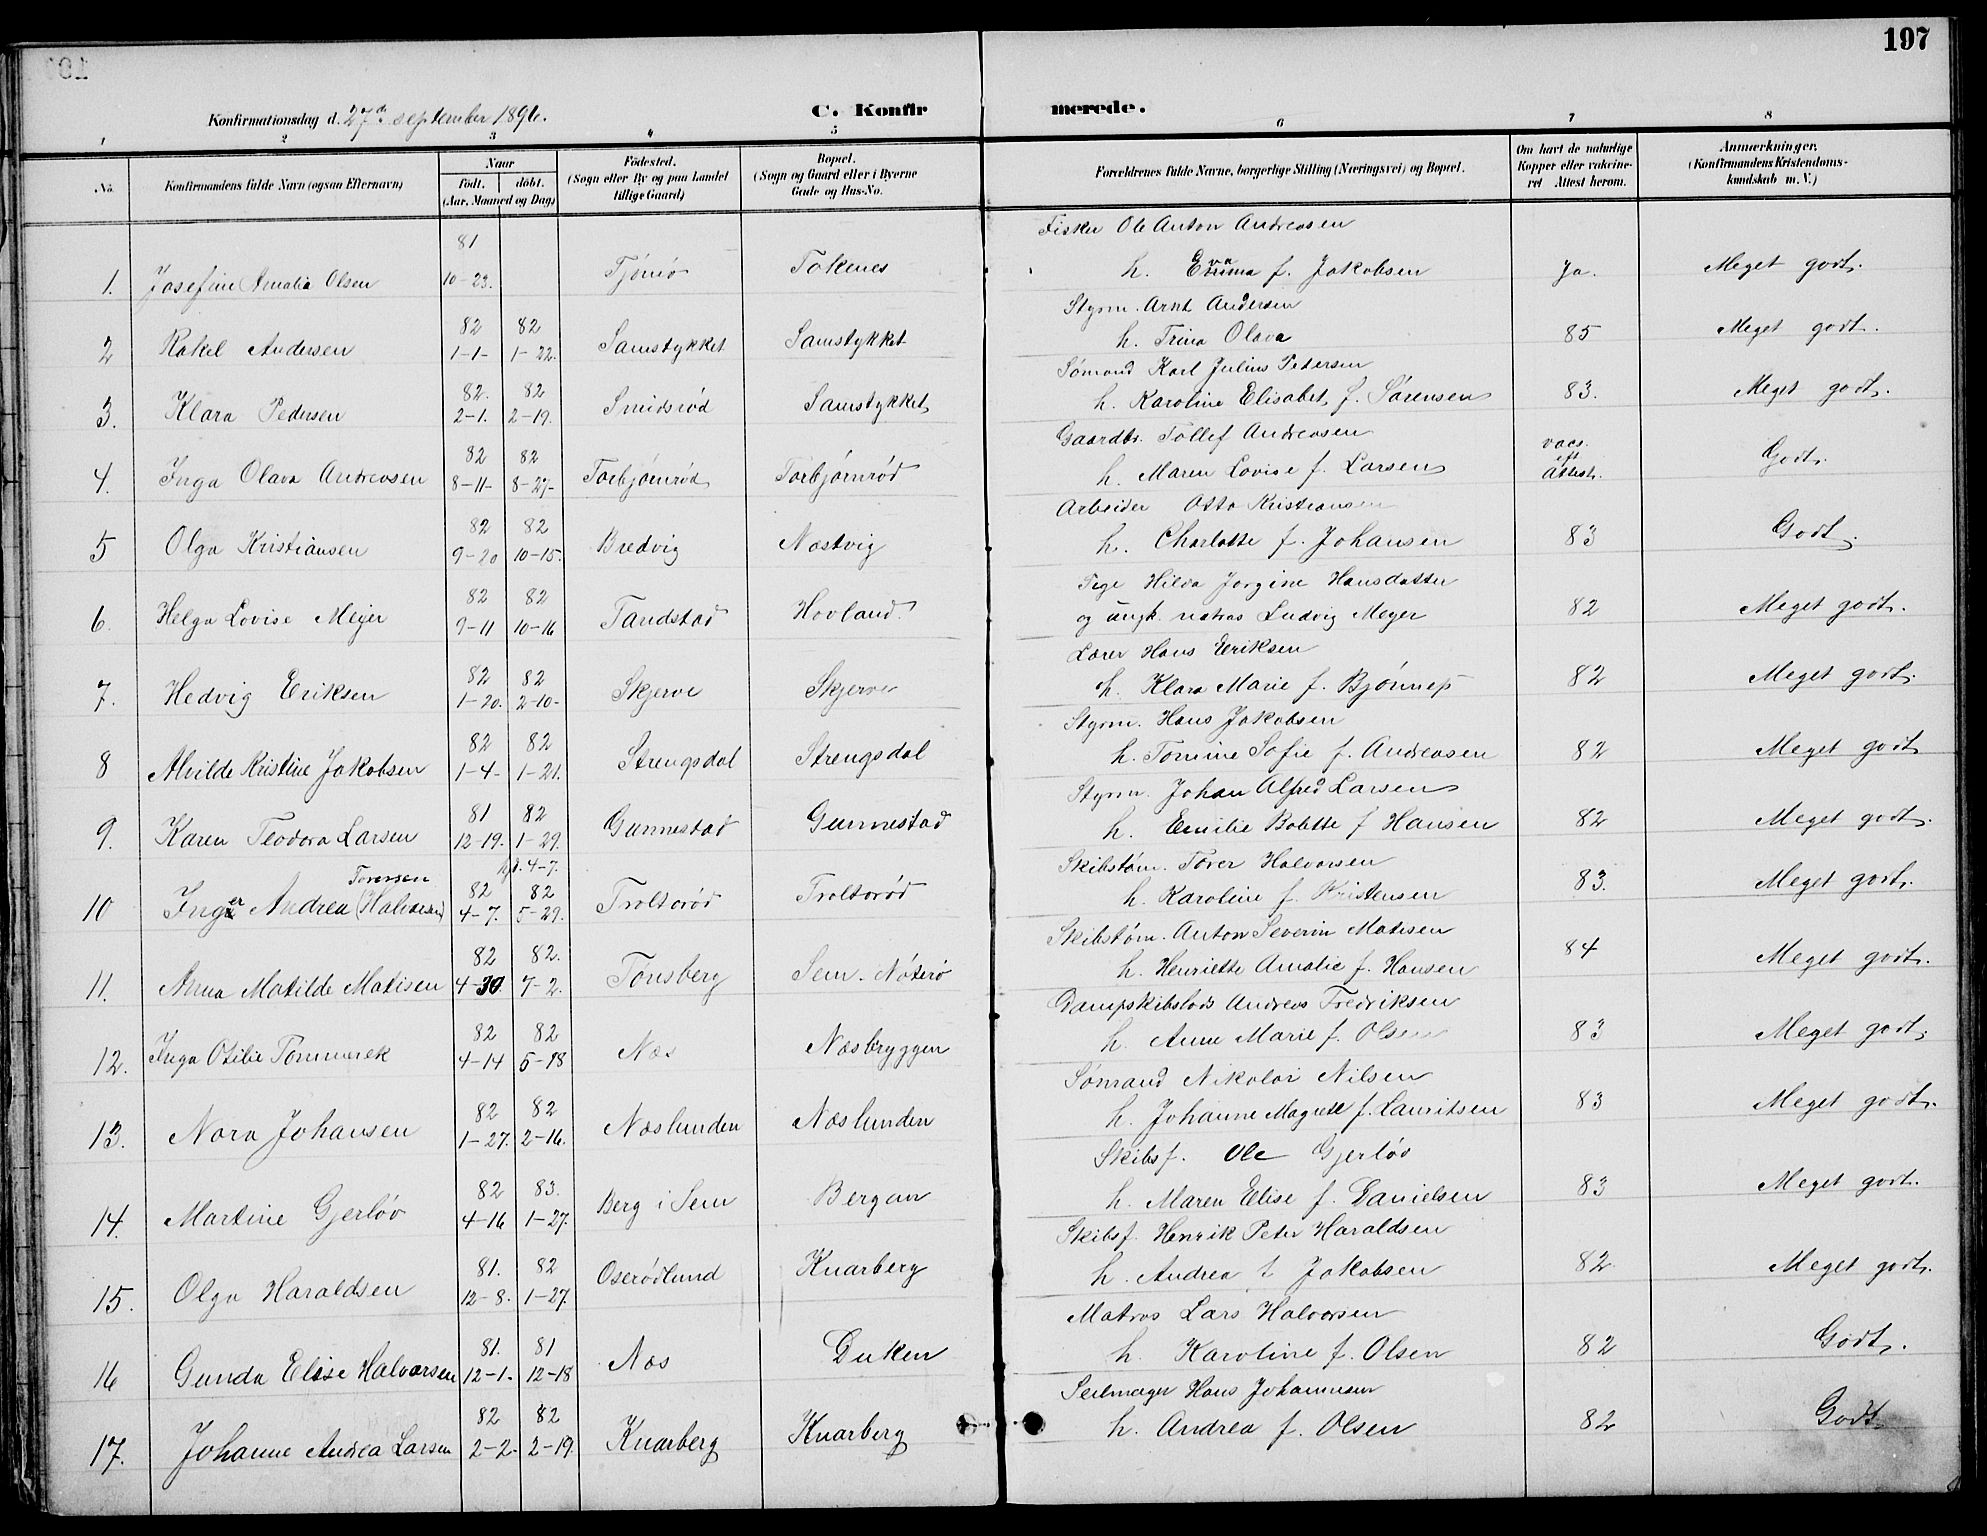 197
Konfirmationsdag d. 27de september 1896.
C. Konfir
merede.
1 2 3 4 5 6 7 8
No.
Konfirmandens fulde Navn (ogsaa Efternavn)
Naar
født. døbt.
(Aar, Maaned og Dag)
Fødested.
(Sogn eller By og paa Landet
tillige Gaard)
Bopæl.
(Sogn og Gaard eller i Byerne
Gade og Hus-No.
Forældrenes fulde Navne, borgerlige Stilling (Næringsvei) og Bopæl.
Om havt de naturlige
Kopper eller vakcine-
ret Attest herom.
Anmærkninger.
(Konfirmandens Kristendoms-
kundskab m. V.)
81 Fisker Ole Anton Andreasen
1. Josefine Amalia Olsen 10-23. Tjømø Tokenes h. Emma f. Jakobsen Ja. Meget godt.
82 82 Styrm. Arnt Andersen
2 Rakel Andersen 1-1- 1-22. Samstykket Samstykket h. Trina Olava 85 Meget godt.
82. 82 Sømand Karl Julius Petersen
3. Klara Pedersen 2-1. 2-19. Smidsrød Samstykket h. Karoline Elisabet f. Sørensen 83. Meget godt.
82 82 Gaardbr. Tollef Andreasen
4. Inga Olava Andreasen 8-11- 8-27- Torbjørnrød Torbjørnrød h. Maren Lovise f. Larsen vacs. Attest. Godt.
82 82 Arbeider Otto Kristiansen
5 Olga Kristiansen 9-20 10-15. Bredvig Næstvig h. Charlotte f. Johansen 83 Godt.
82 82 Pige Hilda Jorgine Hansdatter
6. Helga Lovise Mejer 9-11 10-16 Tandstad Hovland og ungk. matros Ludvig Meyer 82 Meget godt.
82 82 Lærer Hans Eriksen
7. Hedvig Eriksen 1-20. 2-10- Skjerve Skjerve h. Klara Marie f. Bjønnes 82 Meget godt.
82 82 Styrm. Hans Jakobsen
8 Alvilde Kristine Jakobsen 1-4- 1-21. Strengsdal Strengsdal h. Tomine Sofie f. Andreasen 82 Meget godt
81 82 Styrm. Johan Alfred Larsen
9. Karen Teodora Larsen 12-19. 1-29. Gunnestad Gunnestad h. Emilie Bolette f Hansen 82 Meget godt.
Toversen 82 82 Skibstøm. Tover Halvorsen
10 Inger Andrea (Halvorsen) 4-7. 5-29. Troltorød Troltorød h. Karoline f. Kristensen 83. Meget godt.
82 82. Skibstøm. Anton Severin Matisen
11. Anna Matilde Matisen 4-30 7-2. Tønsberg Sem. Nøterø h. Henriette Amalie f. Hansen 84 Meget godt.
82 82 Dampskibslods Andreas Fredriksen
12. Inga Otilie Tommerek 4-14 5-18 Næs Næsbryggen h. Anne Marie f. Olsen 83 Meget godt.
82 82 Sømand Nikolai Nilsen
13. Nora Johansen 1-27. 2-16. Næslunden Næslunden h. Johanne Magrete f. Lauritsen 83 Meget godt.
82 83. Skibsf. Ole Gjerløv
14. Martine Gjerløv 4-16 1-27. Berg i Sem Bergan h. Maren Elise f. Danielsen 83 Meget godt.
81. 82 Skibsf. Henrik Peter Haraldsen
15. Olga Haraldsen 12-8. 1-27. Oserødlund Knarberg h. Andrea f Jakobsen 82 Meget godt.
81. 81 Matros Lars Halvorsen
16 Gunda Elise Halvorsen 12-1. 12-18 Næs Duken h. Karoline f. Olsen 82 Godt.
82 82 Seilmager Hans Johannesen
17. Johanne Andrea Larsen 2-2- 2-19. Knarberg Knarberg h. Andrea f. Olsen 82 Godt.